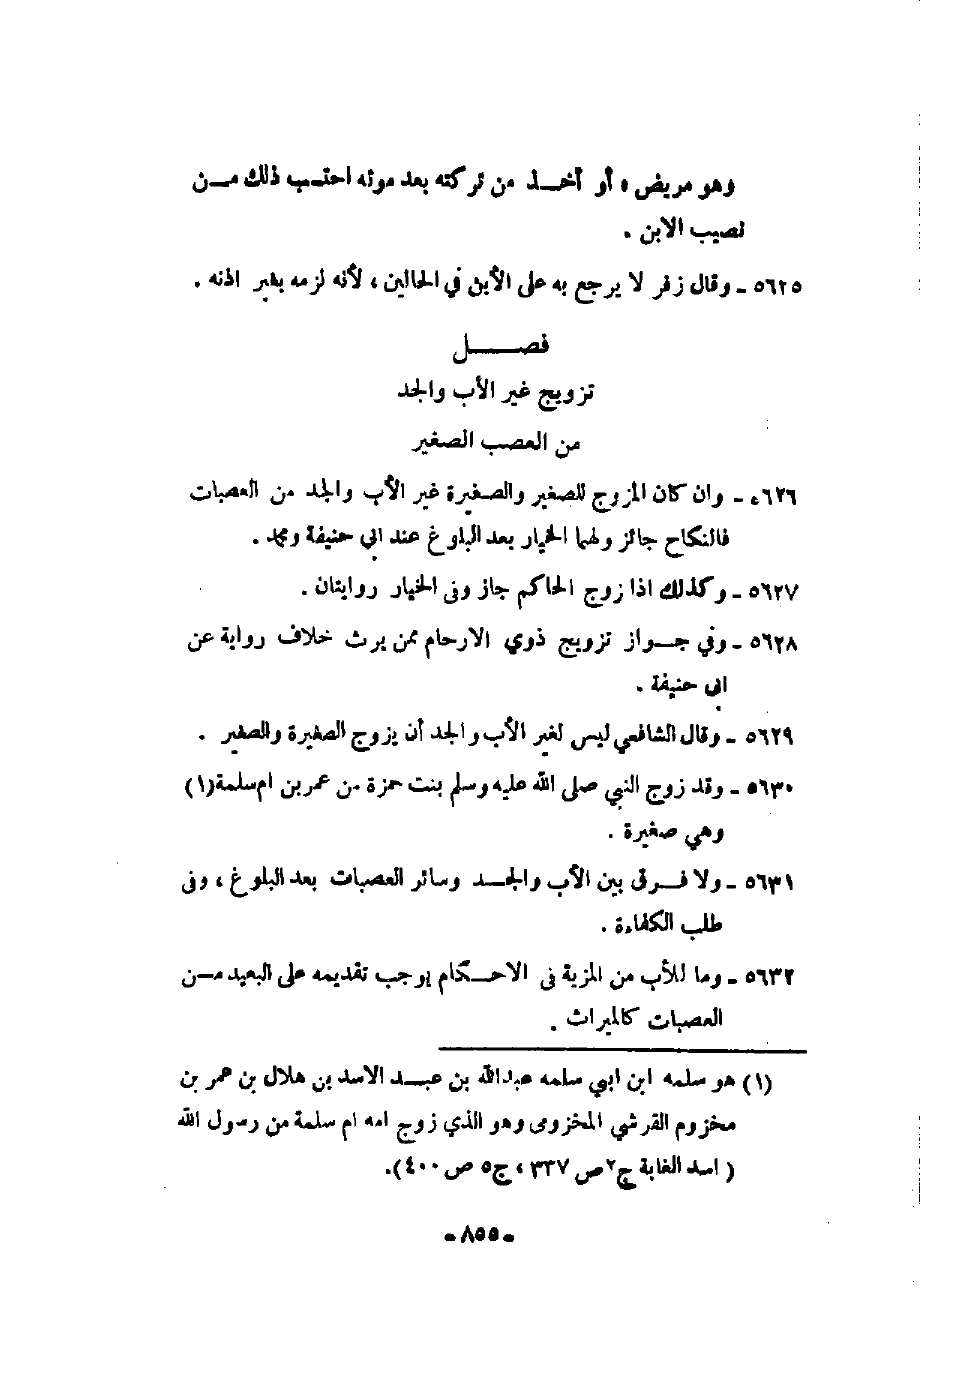 وهو مريض ، أو أخـــذ من تركته بعد موته احتسب ذلك مــن
نصيب الابن .
٥٦٢٥ ـ وقال زفر لا يرجع به على الأبن في الحالين ، لأنه لزمه بغير اذنه .
فصـــــل
تزويج غير الأب والجد
من العصب الصغير
٥٦٢٦ ـ وان كان المزوج للصغير والصغيرة غير الأب والجد من العصبات
فالنكاح جائز ولهما الخيار بعد البلوغ عند ابي حنيفة ومحمد .
٥٦٢٧ ـ وكذلك اذا زوج الحاكم جاز وفى الخيار روايتان .
٥٦٢٨ ـ وفي جــواز تزويج ذوي الارحام ممن يرث خلاف رواية عن
ابي حنيفة .
٥٦٢٩ ـ وقال الشافعي ليس لغير الأب والجد أن يزوج الصغيرة والصغير .
٥٦٣٠ ـ وقد زوج النبي صلى الله عليه وسلم بنت حمزة من عمر بن ام سلمة(١)
وهي صغيرة .
٥٦٣١ ـ ولا فــرق بين الأب والجــد وسائر العصبات بعد البلوغ ، وفى
طلب الكفاءة .
٥٦٣٢ ـ وما للأب من المزية فى الاحــكام يوجب تقديمه على البعيد مــن
العصبات كالميراث .
(١) هو سلمه ابن ابي سلمه عبدالله بن عبــد الاسد بن هلال بن عمر بن
مخزوم القرشي المخزومى وهو الذي زوج امه ام سلمة من رسول الله
( اسد الغابة ج٢ ص ٣٣٧ ، ج٥ ص ٤٠٠).
ـ ٨٥٥ ـ